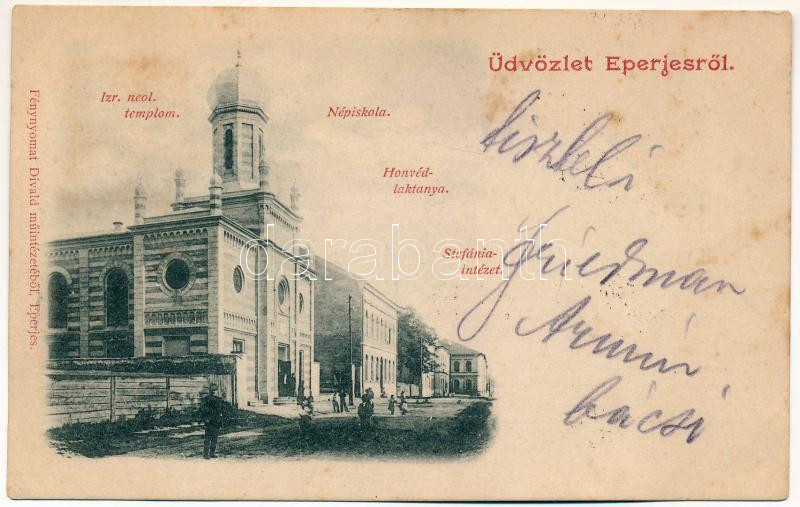 Üdvözlet Eperjesről.
Izr. neol.
templom.
Népiskola.
Honvéd-
laktanya.
Stefánia-
intézet.
Fénynyomat Divald műintézetéből, Eperjes.
tiszteli
Friedman
Ármin
bácsi
darabanth